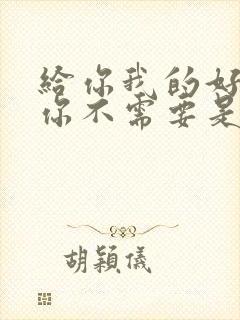 給你我的好
你不需要是
胡穎儀